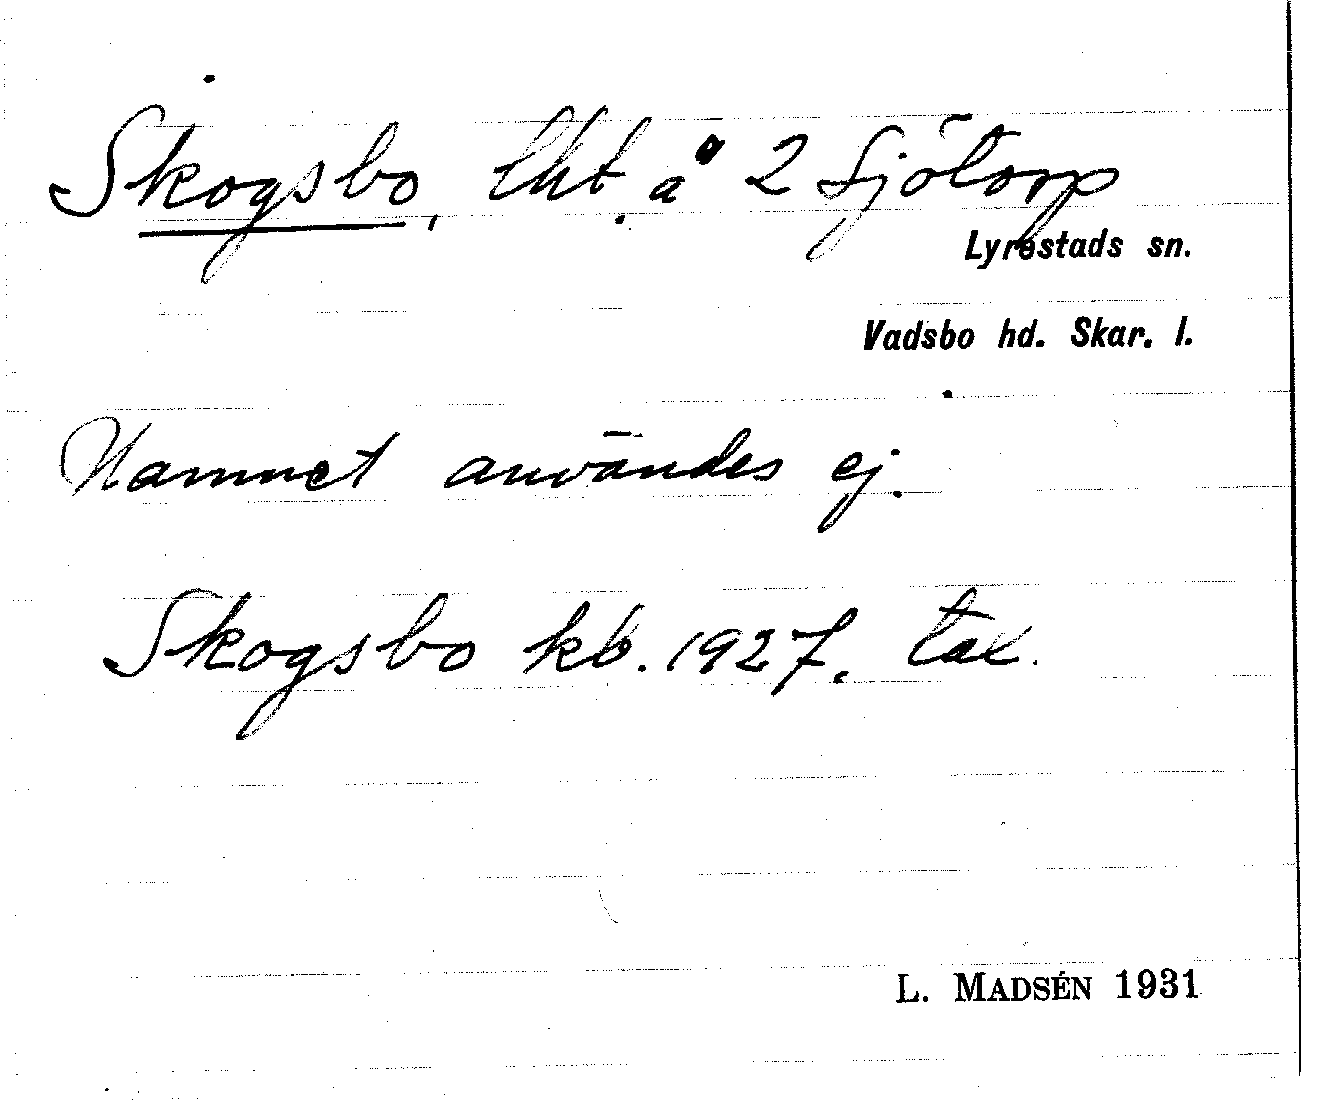 Skogsbo, lht. å 2 Sjötorp
Lyrestads sn.
Vadsbo hd. Skar. l.
Namnet användes ej.
Skogsbo kb. 1927. tax.
L. MADSÉN 1931